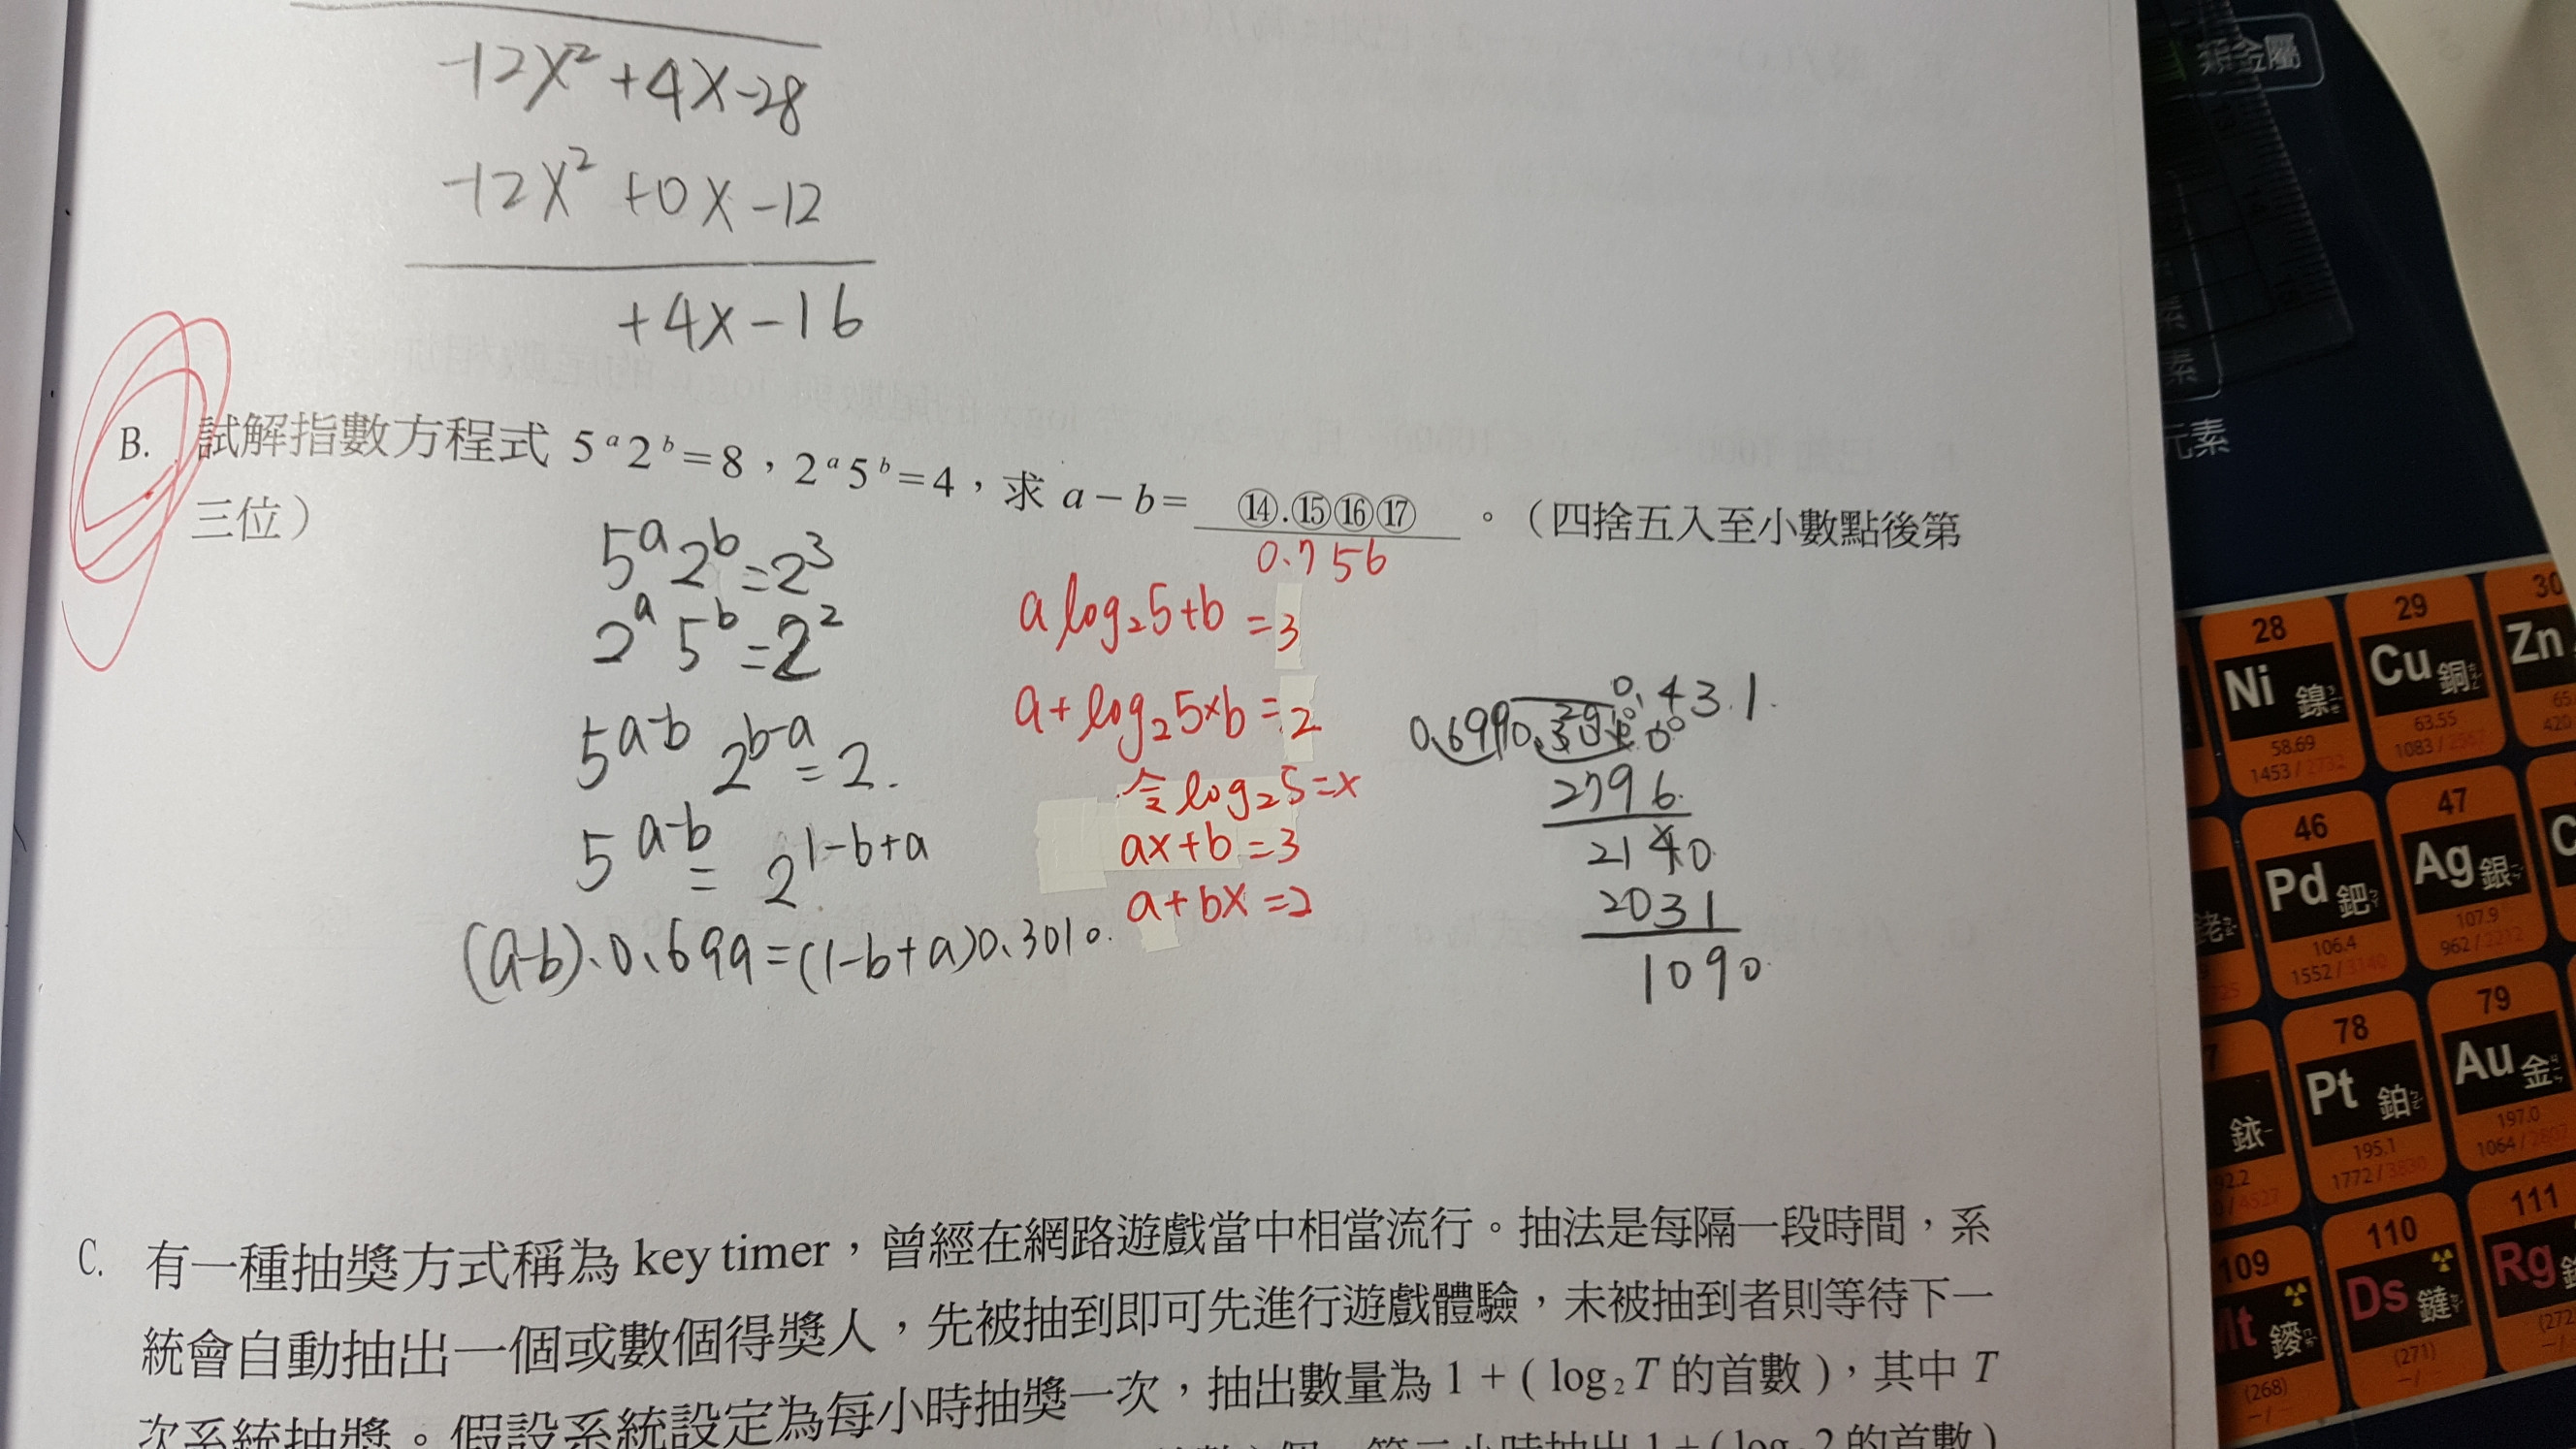 -12x²+4x-28
-12x²+0x-12
+4x-16
B. 試解指數方程式 5ᵃ2ᵇ=8，2ᵃ5ᵇ=4，求 a－b= ⑭.⑮⑯⑰ 。（四捨五入至小數點後第
三位）
0.756
5ᵃ2ᵇ=2³
2ᵃ5ᵇ=2²
5ᵃ⁻ᵇ 2ᵇ⁻ᵃ=2.
5ᵃ⁻ᵇ = 2¹⁻ᵇ⁺ᵃ
(a-b)、0.699=(1-b+a)0.3010.
a log₂5+b =3
a+log₂5×b=2
令log₂5=x
ax+b=3
a+bx=2
0.431.
0.699
2796.
2140
2031
1090.
C. 有一種抽獎方式稱為 key timer，曾經在網路遊戲當中相當流行。抽法是每隔一段時間，系
統會自動抽出一個或數個得獎人，先被抽到即可先進行遊戲體驗，未被抽到者則等待下一
次系統抽獎。假設系統設定為每小時抽獎一次，抽出數量為 1＋( log₂T 的首數 )，其中 T
類金屬
元素
28
Ni 鎳
58.69
1453 / 2732
29
Cu 銅
63.55
1083 / 2567
30
Zn
46
Pd 鈀
106.4
1552 / 3140
47
Ag 銀
107.9
962 / 2212
銠
78
Pt 鉑
195.1
1772 / 3830
79
Au 金
197.0
銥
109
Mt 䥑
(268)
110
Ds 鐽
(271)
111
Rg